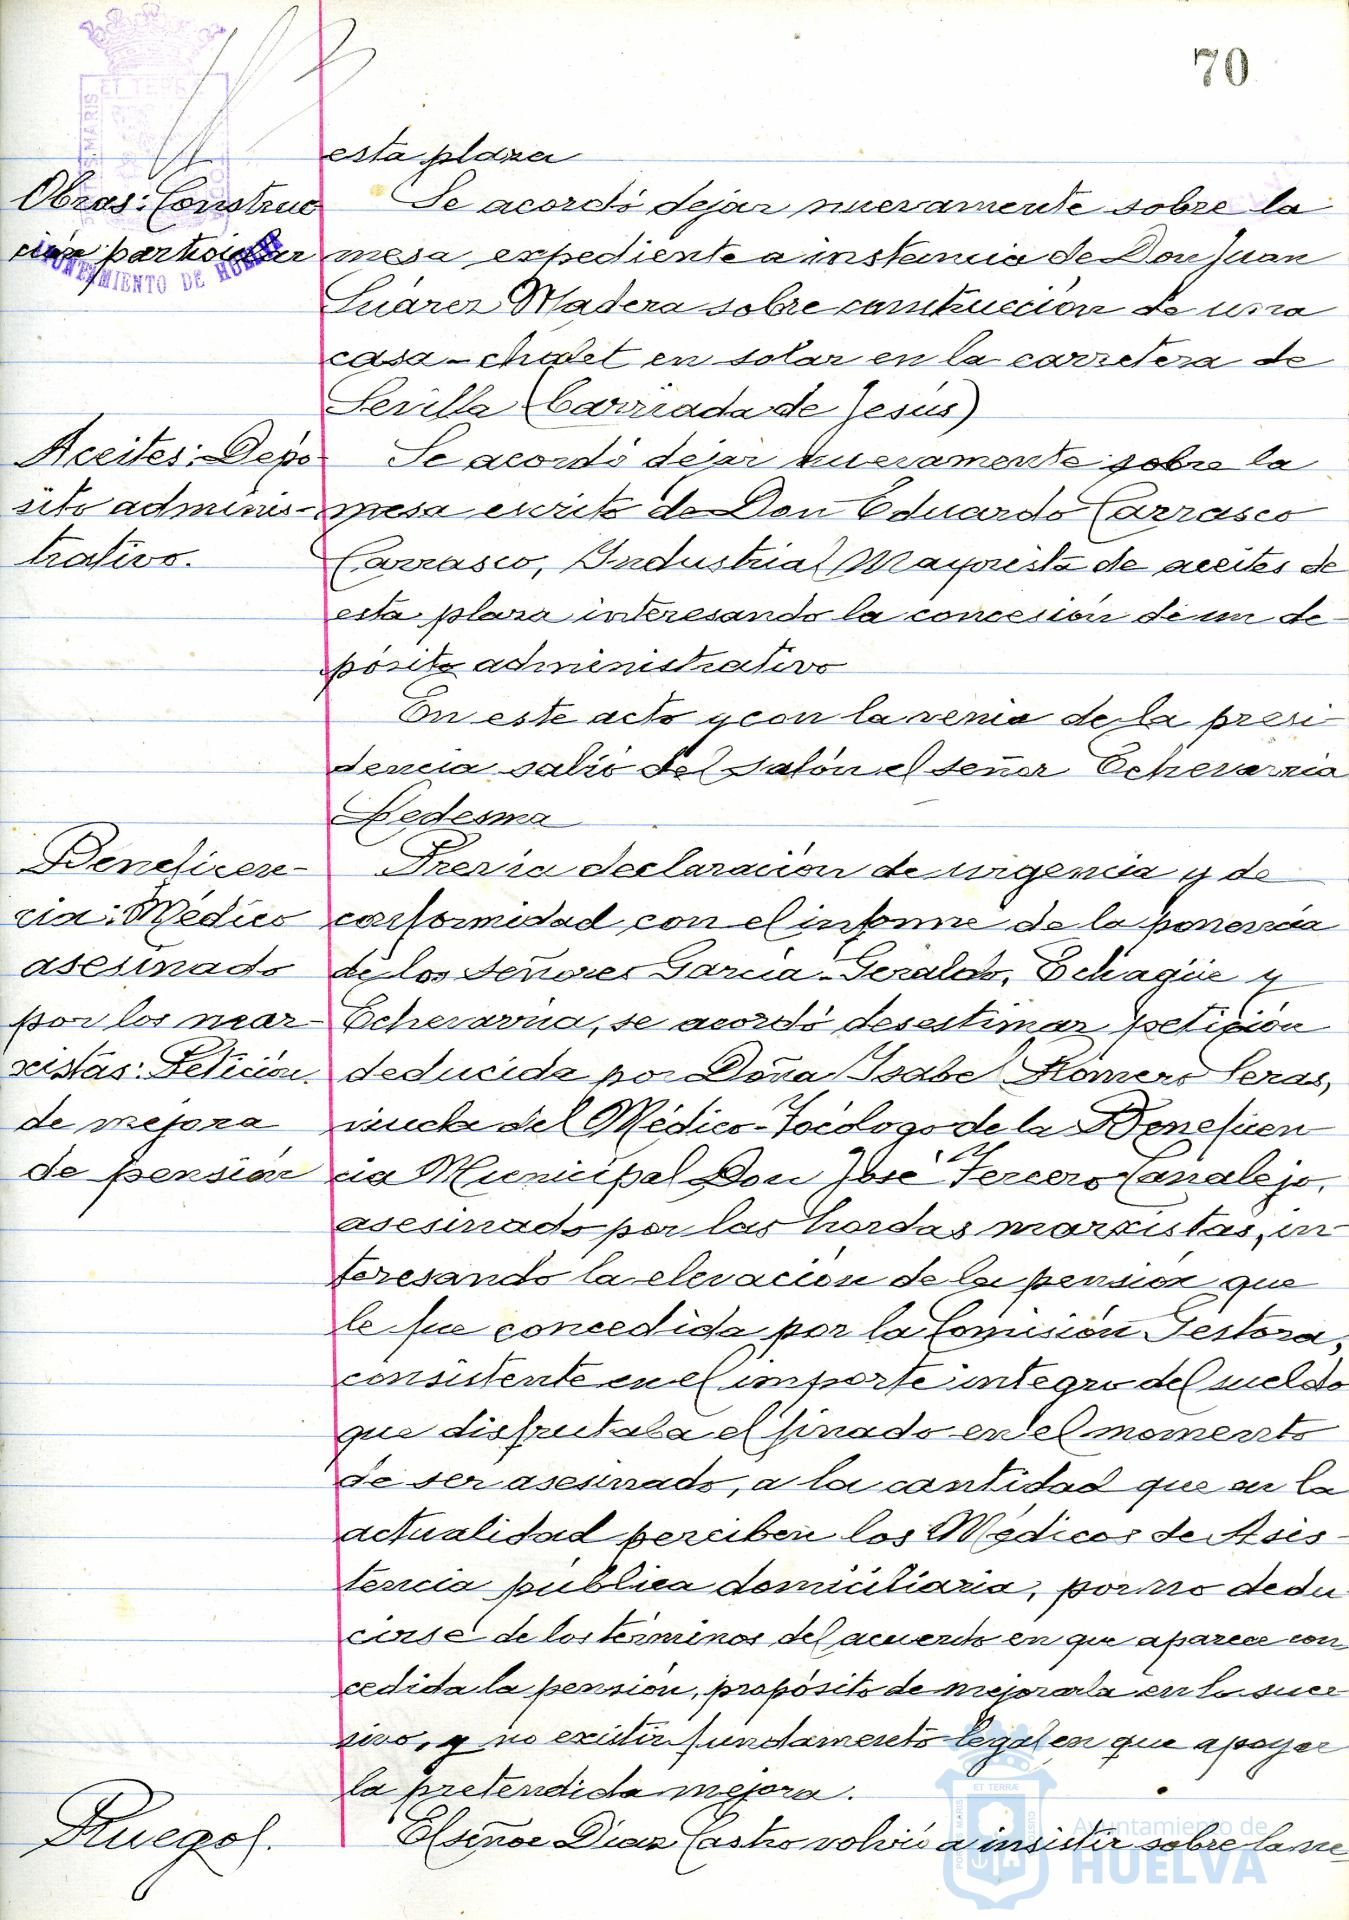 70
esta plaza
Obras: Construc
ción particular
Se acordó dejar nuevamente sobre la
mesa expediente a instancia de Don Juan
Suárez Madera sobre construcción de una
casa-chalet en solar en la carretera de
Sevilla (Barriada de Jesús)
Aceites: Depó-
sito adminis-
trativo.
Se acordó dejar nuevamente sobre la
mesa escrito de Don Eduardo Carrasco
Carrasco, Industrial Mayorista de aceites de
esta plaza interesando la concesión de un de-
pósito administrativo
En este acto y con la venia de la presi-
dencia salió del salón el señor Echevarria
Ledesma
Beneficen-
cia: Médico
asesinado
por los mar-
xistas: Petición
de mejora
de pensión
Previa declaración de urgencia y de
conformidad con el informe de la ponencia
de los señores García-Geraldo, Echagüe y
Echevarría, se acordó desestimar petición
deducida por Doña Isabel Romero Ceras,
viuda del Médico-Tocólogo de la Beneficen
cia Municipal Don José Tercero Canalejo,
asesinado por las hordas marxistas, in-
teresando la elevación de la pensión que
le fue concedida por la Comisión Gestora,
consistente en el importe integro del sueldo
que disfrutaba el finado en el momento
de ser asesinado, a la cantidad que en la
actualidad perciben los Médicos de Asis-
tencia pública domiciliaria, por no dedu
cirse de los términos del acuerdo en que aparece con
cedida la pensión, propósito de mejorarla en lo suce
sivo, y no existir fundamento legal en que apoyar
la pretendida mejora.
Ruegos.
El señor Díaz Castro volvió a insistir sobre la ne-
ET TERRE
MARIS
AYUNTAMIENTO DE HUELVA
ET TERRÆ
Ayuntamiento de
HUELVA